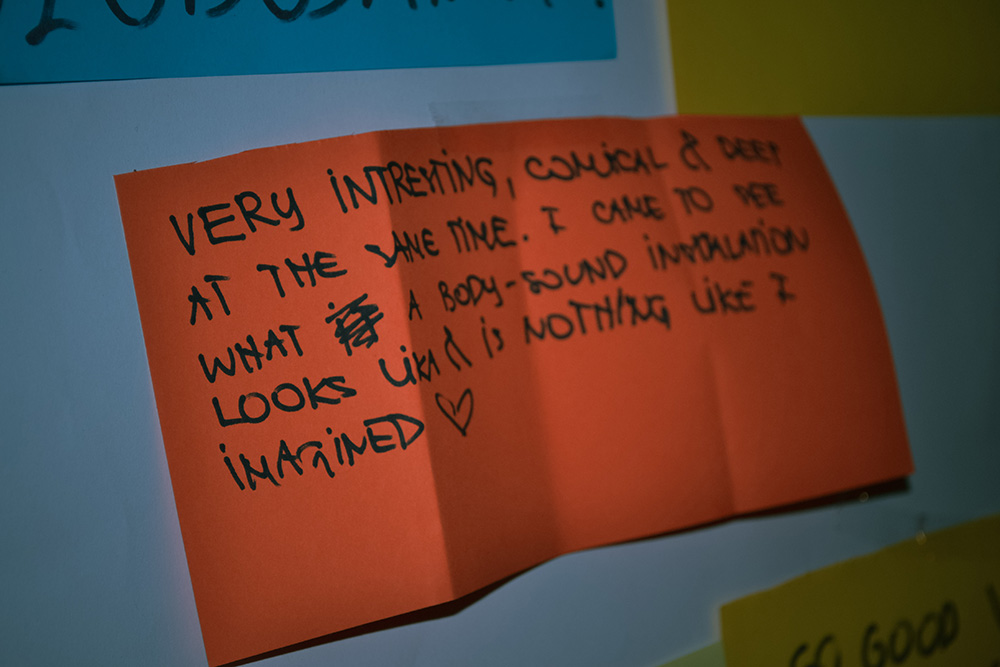 VERY INTRESTING, COMICAL & DEEP
AT THE SAME TIME. I CAME TO SEE
WHAT A BODY-SOUND INSTALATION
LOOKS LIKE & IS NOTHING LIKE I
IMAGINED ♡
GO GOOD